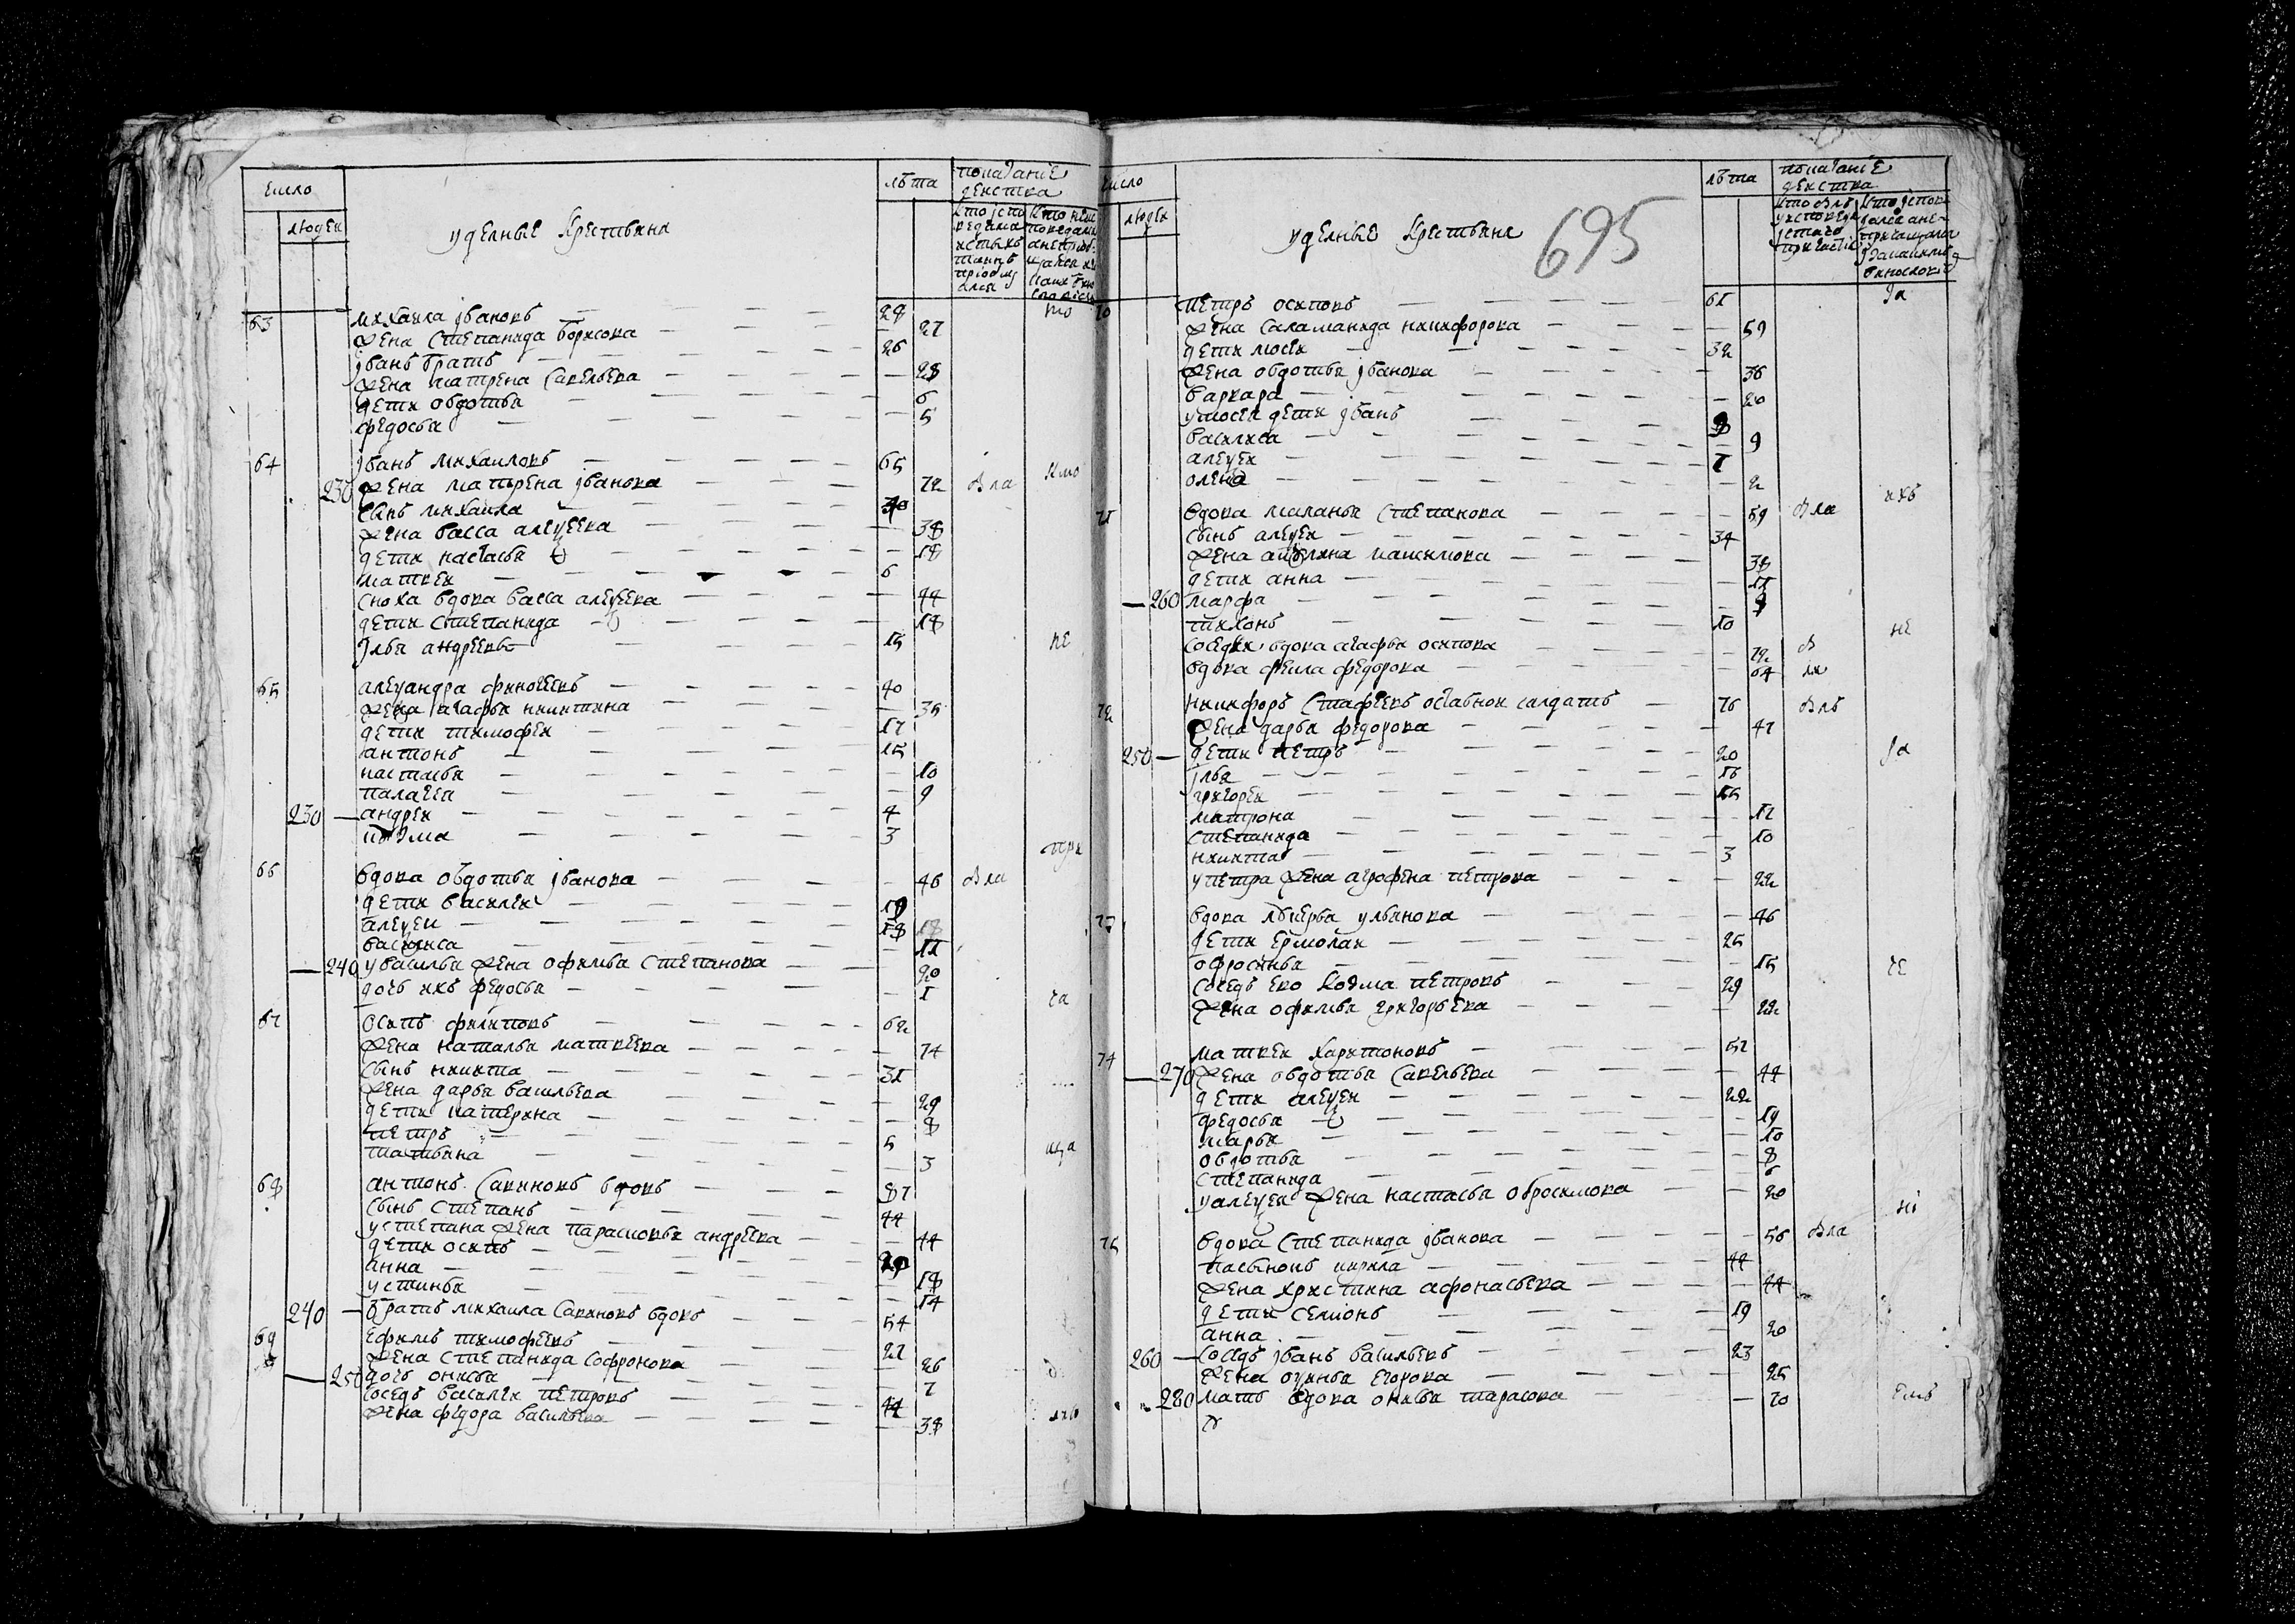 число
людеи
уделные крестьяна
лѣта
показаніе
действа
63 михаила івановъ 28
жена степанида борисова 27
іванъ братъ 26
жена матрена савельева 28
дети овдотья 6
федосья 5
64 іванъ михаиловъ 65
230 жена матрена іванова 72 была
сынъ михаила
жена васса алеѯеева 38
дети настасья 18
матвеи 6
сноха вдова васса алеѯеева 44
дети степанида 18
Илья андреевъ 15
не
65 алеѯандра финогеевъ 40
жена агафья никитина 35
дети тимофеи 17
антонъ 15
настасья 10
палагея 9
230 андреи 4
козма 3
при
66 вдова овдотья іванова 46 была
дети василеи
алеѯеи 18
василиса 11
240 у василья жена офимья степанова 20
дочь ихъ федосья 1
ча
67 Осипъ филиповъ 62
жена наталья матвеева 74
сынъ никита 31
жена дарья васильева 29
дети катерина 8
петръ 5
татьяна 3
ща
68 антонъ савиновъ вдовъ 87
сынъ степанъ 44
у степана жена парасковья андреева 44
дети осипъ
анна 18
устинья 14
240 братъ михаила савиновъ вдовъ 54
69 ефимъ тимофеевъ 27
жена степанида софронова 26
250 дочь онисья 7
соседъ василеи петровъ 44
жена федора васильева 38
число
людеи
уделные крестьяна
695
лѣта
показаніе
действа
70 петръ осиповъ 61
за
жена саламанида никифорова 59
дети мосеи 32
жена овдотья іванова 36
варвара 20
у мосея дети іванъ 8
василиса 9
алеѯеи 7
олена 2
71 вдова маланья степанова 59 была
ихъ
сынъ алеѯеи 34
жена акулина максимова 38
дети анна 11
260 марфа
тихонъ 10
соседки вдова агафья осипова 72
не
вдова фекла федорова 64
72 никифоръ стафеевъ отставнои салдатъ 76 былъ
жена дарья федорова 47
250 дети петръ 20
за
ілья 16
григореи 15
матрона 12
степанида 10
никита 3
у петра жена аграфена петрова 22
73 вдова лукерья ульянова 46
дети ермолаи 25
офросинья 15
соседъ ево козма петровъ 29
жена офимья григорьева 22
74 матвеи харитоновъ 52
270 жена овдотья савельева 44
дети алеѯеи 22
федосья 19
марья 10
овдотья 8
степанида 6
у алеѯея жена настасья обросимова 20
75 вдова степанида іванова 56 была
пасынокъ кирила 44
жена христина афонасьева 44
дети семіонъ 19
анна 20
260 соседъ іванъ васильевъ 23
жена оѯинья егорова 25
280 мать вдова онисья тарасова 70